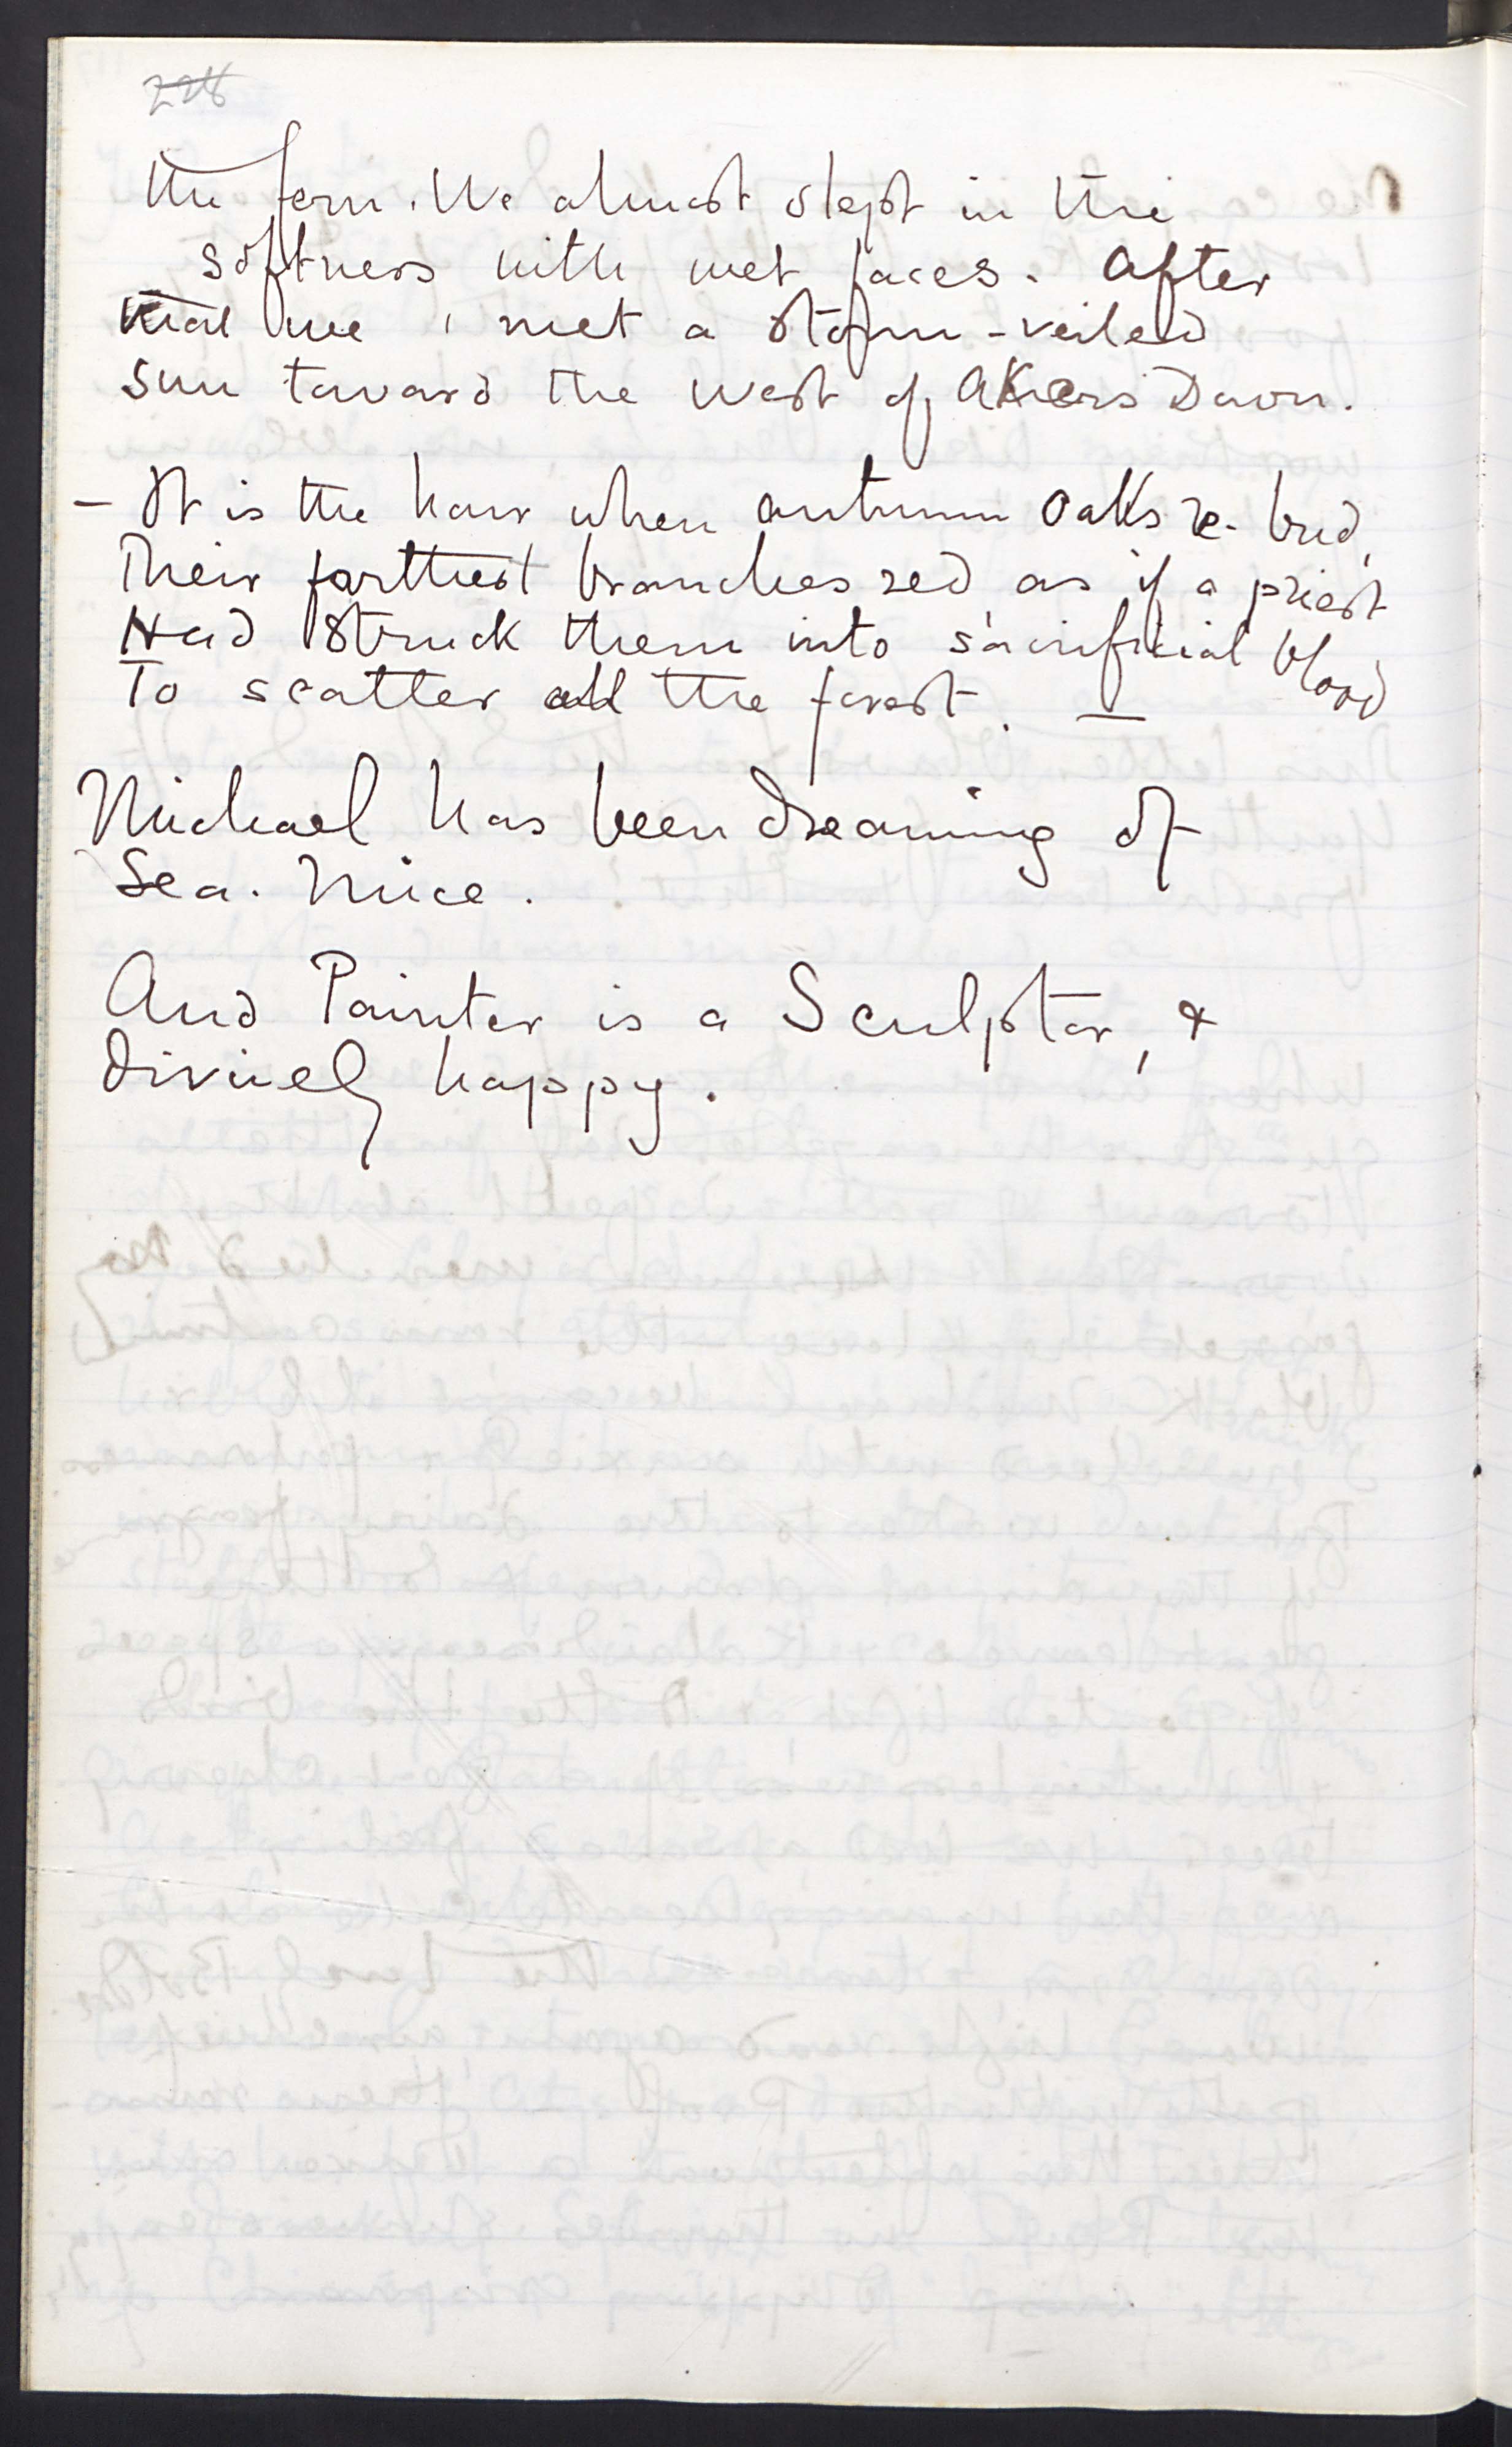 the fern. We almost slept in the
softness with wet faces. After
that we met a storm-veiled
sun toward the West of Akers Down.
– It is the hour when autumn oaks re-bud,
Their farthest branches red, as if a priest
Had struck them into sacrificial blood
To scatter all the forest. —
Michael has been dreaming of
Sea-Mice.
And Painter is a Sculptor, &
divinely happy.